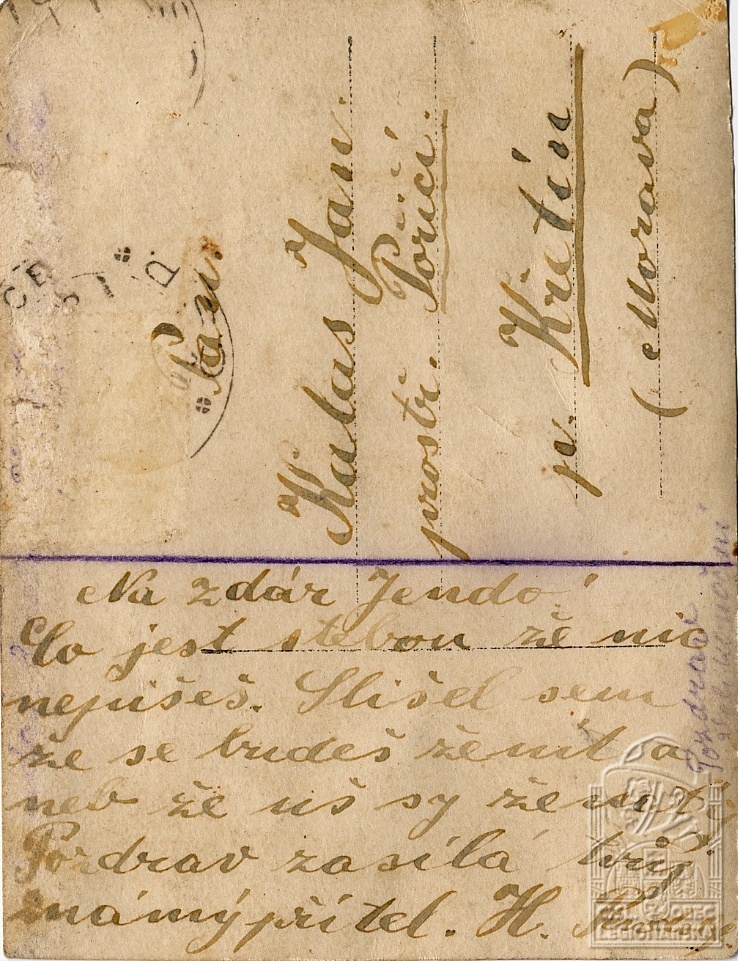 Pan.
Kulas Jan.
prostř. Poříčí.
p. Křetín
(Morava)
Na zdar Jendo!
Co jest stebou že nic
nepišeš. Slišel sem
že se budeš ženit a
neb že uš sy ženat.
Pozdrav zasílá tvůj
známý přítel. H.
Pozdrav
ČSL. OBEC
LEGIONÁŘSKÁ